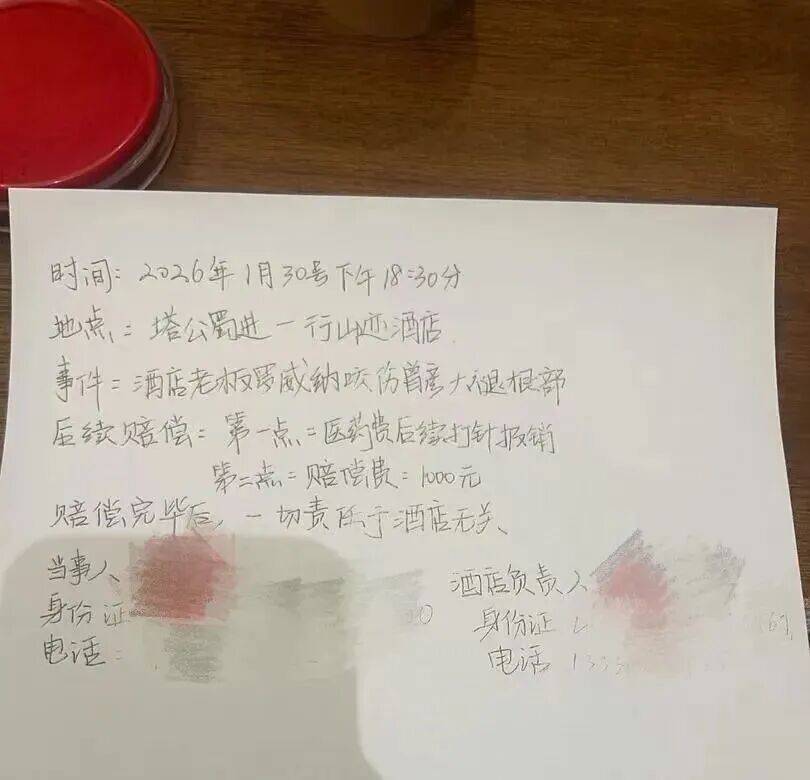 时间：2026年1月30号下午18:30分
地点：塔公蜀进一行山迹酒店
事件：酒店老板罗威纳咬伤曾彦大腿根部
后续赔偿：第一点：医药费后续打针报销
第二点：赔偿费：1000元
赔偿完毕后，一切责任于酒店无关、
当事人
酒店负责人
身份证
身份证
电话：
电话